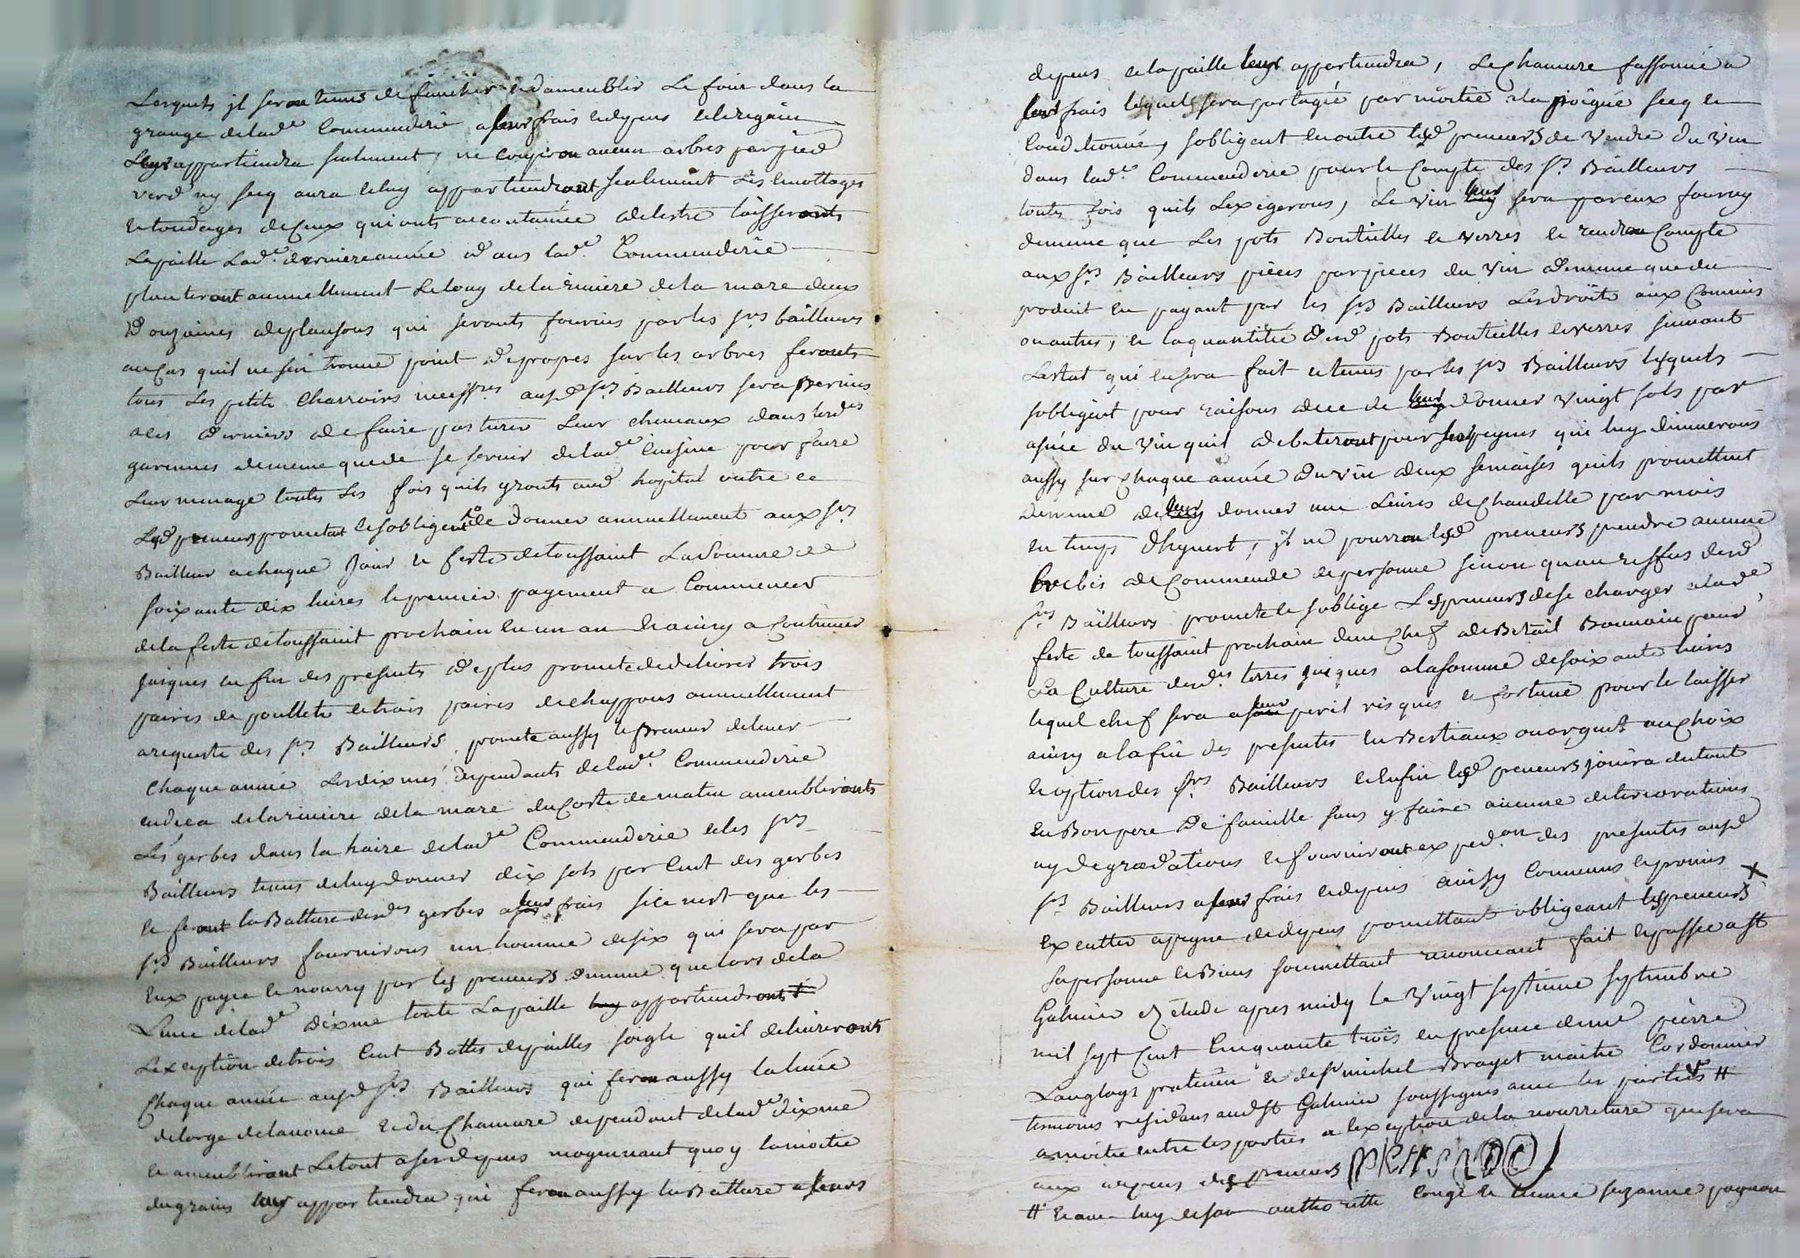 Lesquels jl seront tenus de faucher et dameublir Le foin dans la
grange de lad.e Commenderie a leurs frais et depens et le regain
Leur appartiendra seulement, ne couperont aucun arbres par pied
verd ny secq aura et luy appartiendront seulement Les emottages
et tondages de ceux qui onts accoutumée de lestre laisseronts
Lapaille Lad.e derniere année dans lad.e Commenderie
planteront annuellement Lelong de la riviere de la mare deux
Douzaines de plansons qui seronts fournis par les srs bailleurs
au cas quil ne sen trouve point de propres sur les arbres feronts
tous Les petits charroirs necessres ausd. srs Bailleurs sera permis
a ces derniers de faire pasturer Leur chevaux dans lesdes
garennes de meme que de se servir de lad.e Cuisine pour faire
Leur menage toutes Les fois quils yronts aud hopital outre ce
Lesd preneurs promettent et sobligent de donner annuellement aux srs
Bailleurs a chaque Jour et feste de toussaint La somme de
soixante dix livres le premier payement a Commencer
de la feste de toussaint prochain en un an et ainsy a Continuer
jusques en fin des presents de plus promet de delivrer trois
paires de poullets et trois paires de chappons annuellement
a requeste des srs Bailleurs, promete aussy le Preneur de lever
Chaque année Les dixmes dependants de lad.e Commenderie
endeca et la riviere de la mare du Coste de amenbliront
Les gerbes dans la haire de lad.e Commenderie et les srs
Bailleurs tenus de luy donner dix sols par Cent des gerbes
et feront la Batture desdes gerbes a leur frais si ce nest que les
srs Bailleurs fourniront un homme de six qui sera par
Eux payée et nourry par les preneurs de meme que lors de la
Levée de lad.e dixme toute La paille luy appartiendront
Lexception de trois Cent Bottes de pailles soigle quil delivreront
Chaque année ausd srs Bailleurs qui feront aussy la levée
de lorge de lavoine et du Chanvre dependant de lad.e dixme
et ameubliront Le tout a ses depens moyennant quoy la moitie
du grains leur appartiendra qui feront aussy la Batture a leurs
depens et la paille leur appartiendra, Le Chanvre fassonné a
leur frais lequel sera partagée par moitie a la poignée secq et
Conditionné, sobligent en outre lesd preneurs de Vendre du Vin
dans lad.e Commenderie pour le Compte des srs Bailleurs
toutes fois quils Lexegerons, Le vin leur sera par eux fourny
de meme que Les pots Bouteilles et verres et rendront Compte
aux srs Bailleurs pieces par pieces du Vin de meme que du
produit en payant par les srs Bailleurs Les droits aux Commis
ou autres, et la quantitée desd pots Bouteilles et verres suivant
Lestat qui en sera fait et tenus par les srs Bailleurs lesquels
sobligent pour raisons de ce de leur donner vingt sols par
asnée du Vin quil debiteront pour leurs peynes qui luy dinnerons
aussy sur Chaque année du vin deux semaises quils promettent
de meme de leur donner une Livres de Chandelle par mois
en temps dhyvert, jl ne pourront lesd preneurs prendre aucune
brebis de Commende de personne sinon quau reffus desd
srs Bailleurs promete et soblige Les preneurs de se charger a lad.e
feste de toussaint prochain dun Chef de Betail Boumain pour
La Culture desdes terres jusques a la somme de soixante livres
lequel chef sera a leur peril risques et fortune pour le laisser
ainsy a la fin des presentes en Bestiaux ou argent au choix
et option des srs Bailleurs et enfin lesd preneurs jouira du tout
en Bon pere De famille sans y faire aucune deteriorations
ny degradations et fourniront expedon des presentes ausd
srs Bailleurs a leurs frais et depens ainsy Convenus et promis
executter a peyne de depens promettant obligeant les preneurs X
sa personne et Biens soumettant renonceant fait et passée a st
Galmier Etude apres midy Le Vingt septieme septembre
mil sept Cent Cinquante trois en presence de me pierre
Langloys praticien et de sr michel Brayet maitre Cordonnier
temoins residans aud st Galmier soussignes avec les parties #
a moitie entre les parties a lexception de la nourriture qui sera
aux depens des preneurs
# et avec luy de son authoritte congé et licence suzanne pagnon